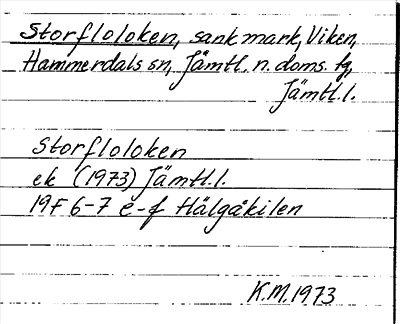 Storfloloken, sank mark, Viken,
Hammerdals sn, Jämtl. n. doms. tg,
Jämtl.l.
Storfloloken
ek (1973) Jämtl.l.
19F 6-7 e-f Hälgåkilen
K.M. 1973